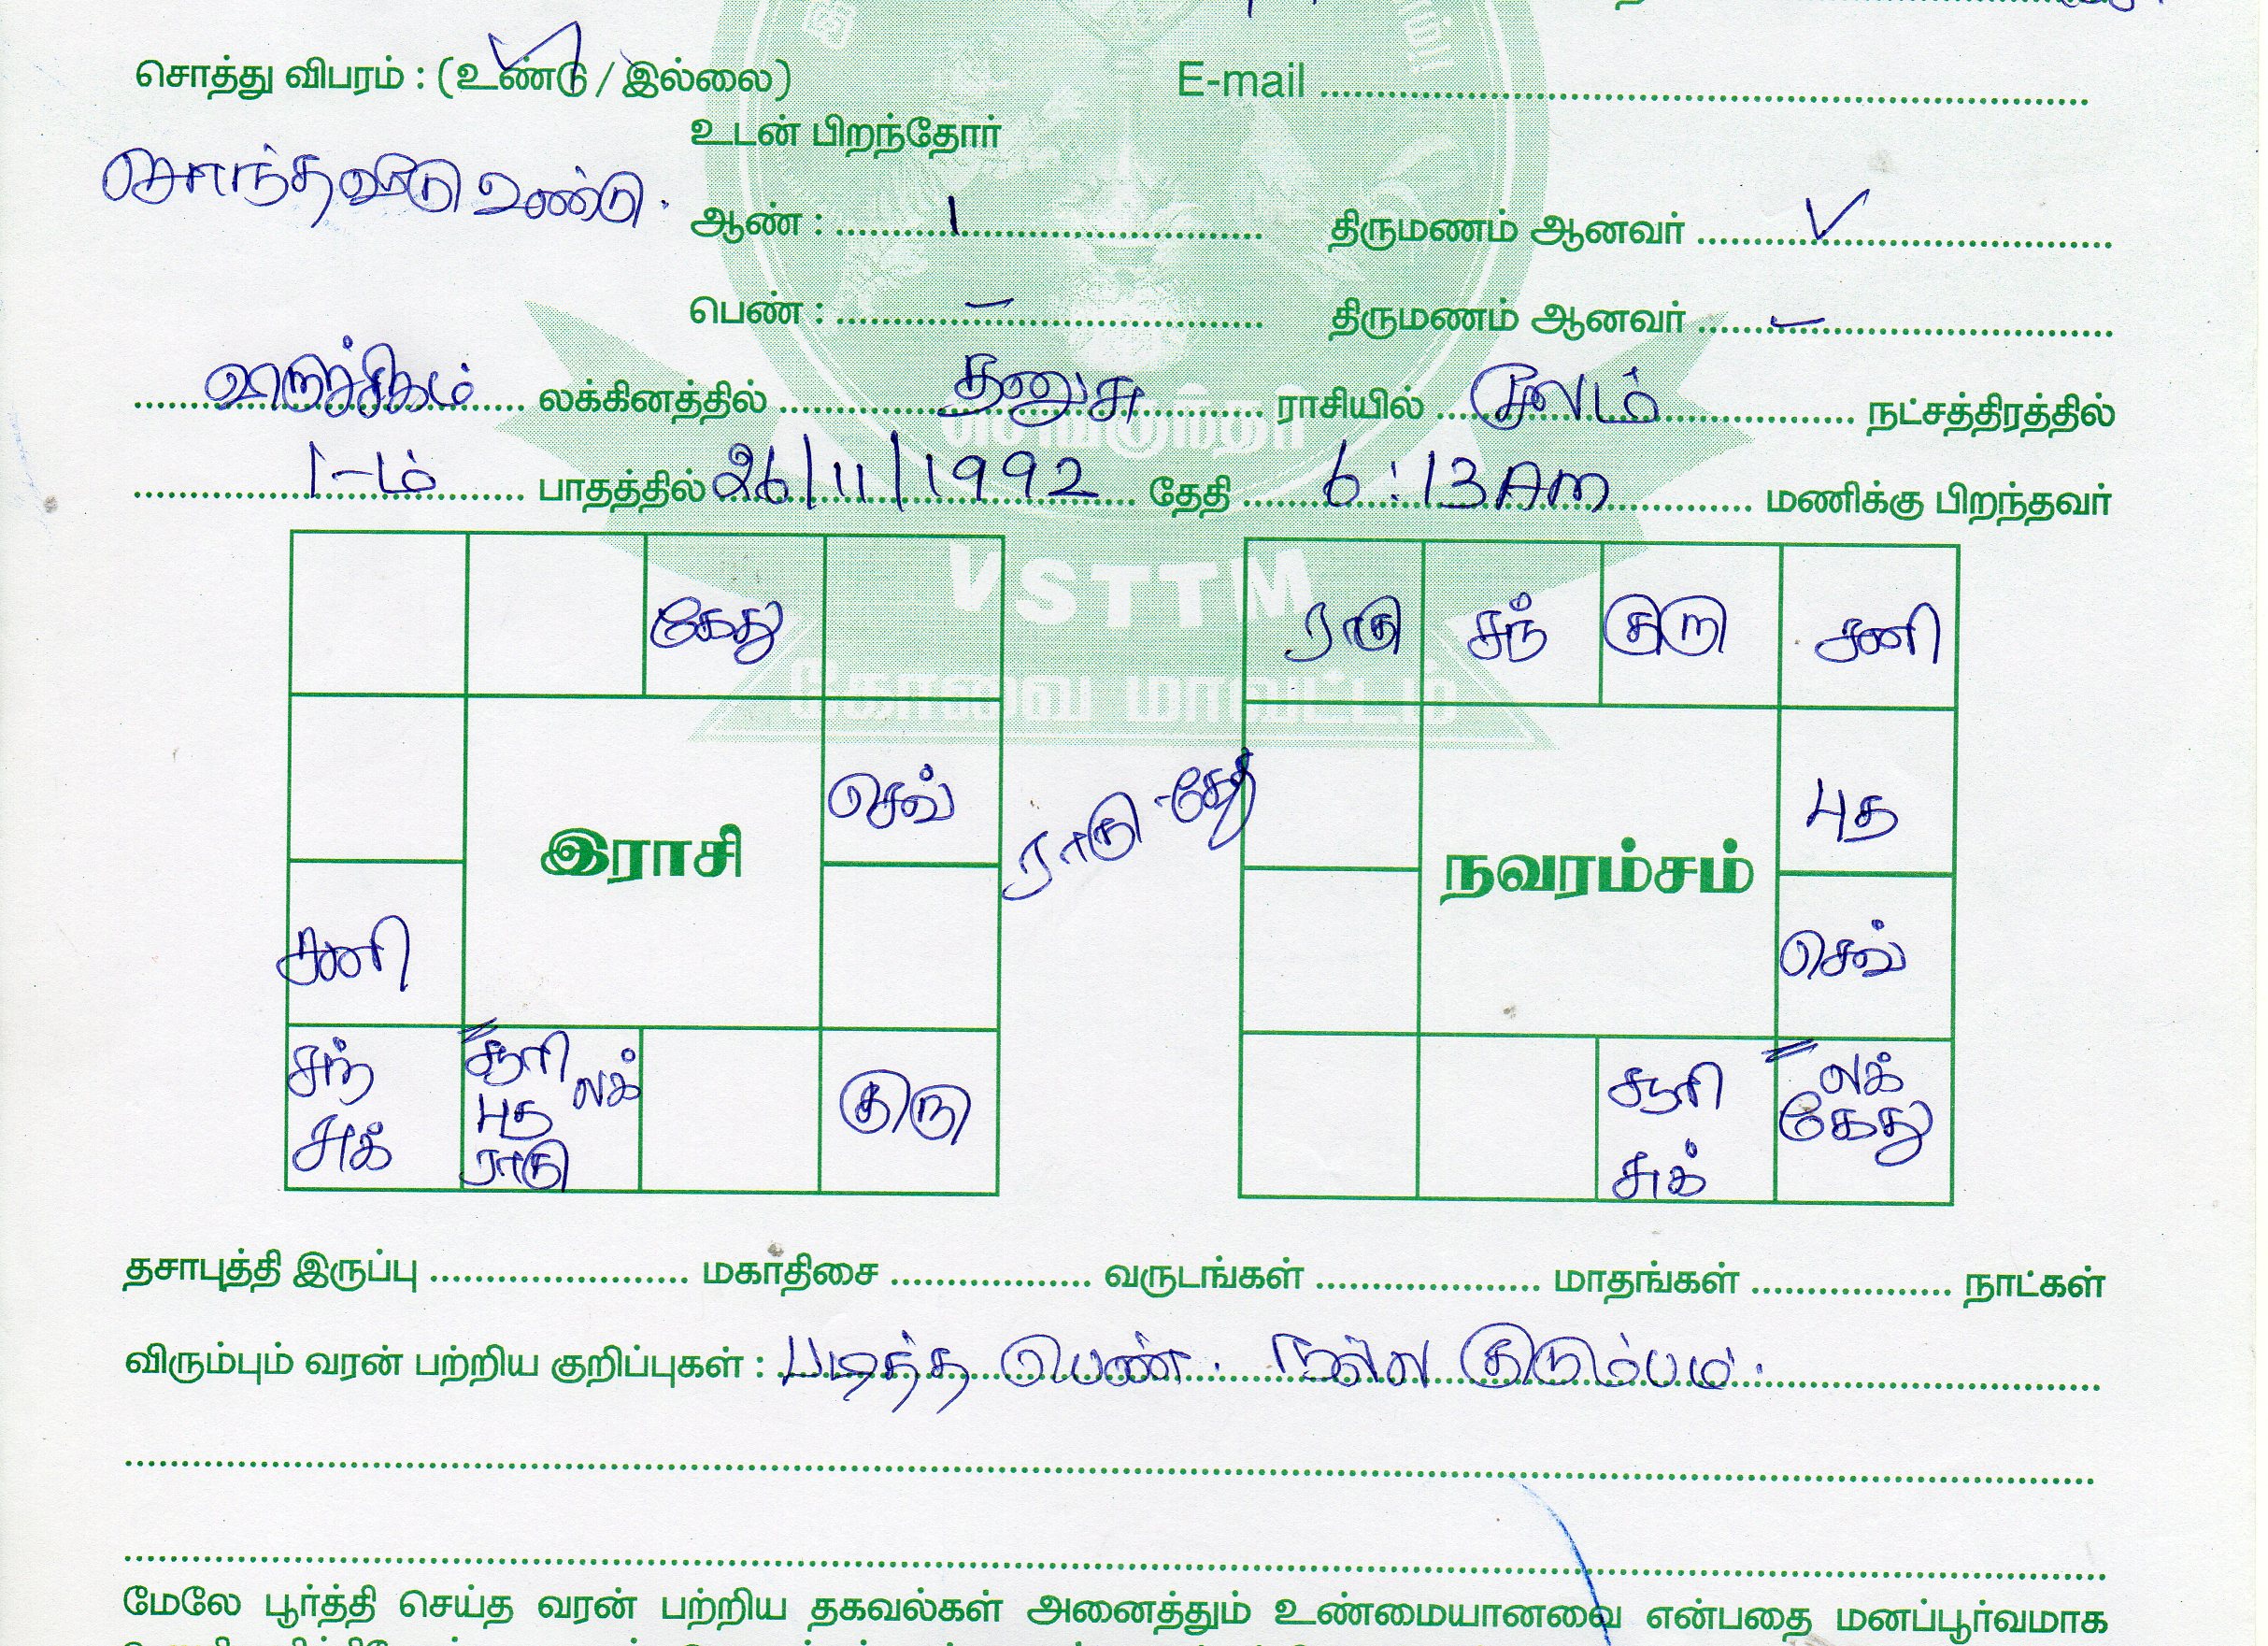 சொத்து விபரம் : (உண்டு / இல்லை) E-mail
உடன் பிறந்தோர்
சொந்த வீடு உண்டு.
ஆண் : 1 திருமணம் ஆனவர் ✓
பெண் : – திருமணம் ஆனவர் –
விருச்சிகம் லக்கினத்தில் தனுசு ராசியில் மூலம் நட்சத்திரத்தில்
செங்குந்தர்
1-ம் பாதத்தில் 26/11/1992 தேதி 6:13 Am மணிக்கு பிறந்தவர்
VSTTM
கோவை மாவட்டம்
கேது
செவ்
இராசி
சனி
சந் சூரி லக் குரு
சுக் புத
ராகு
ராகு - கேது
ராகு சந் குரு சனி
புத
நவரம்சம்
செவ்
சூரி லக்
சுக் கேது
தசாபுத்தி இருப்பு மகாதிசை வருடங்கள் மாதங்கள் நாட்கள்
விரும்பும் வரன் பற்றிய குறிப்புகள் : படித்த பெண். நல்ல குடும்பம்.
மேலே பூர்த்தி செய்த வரன் பற்றிய தகவல்கள் அனைத்தும் உண்மையானவை என்பதை மனப்பூர்வமாக